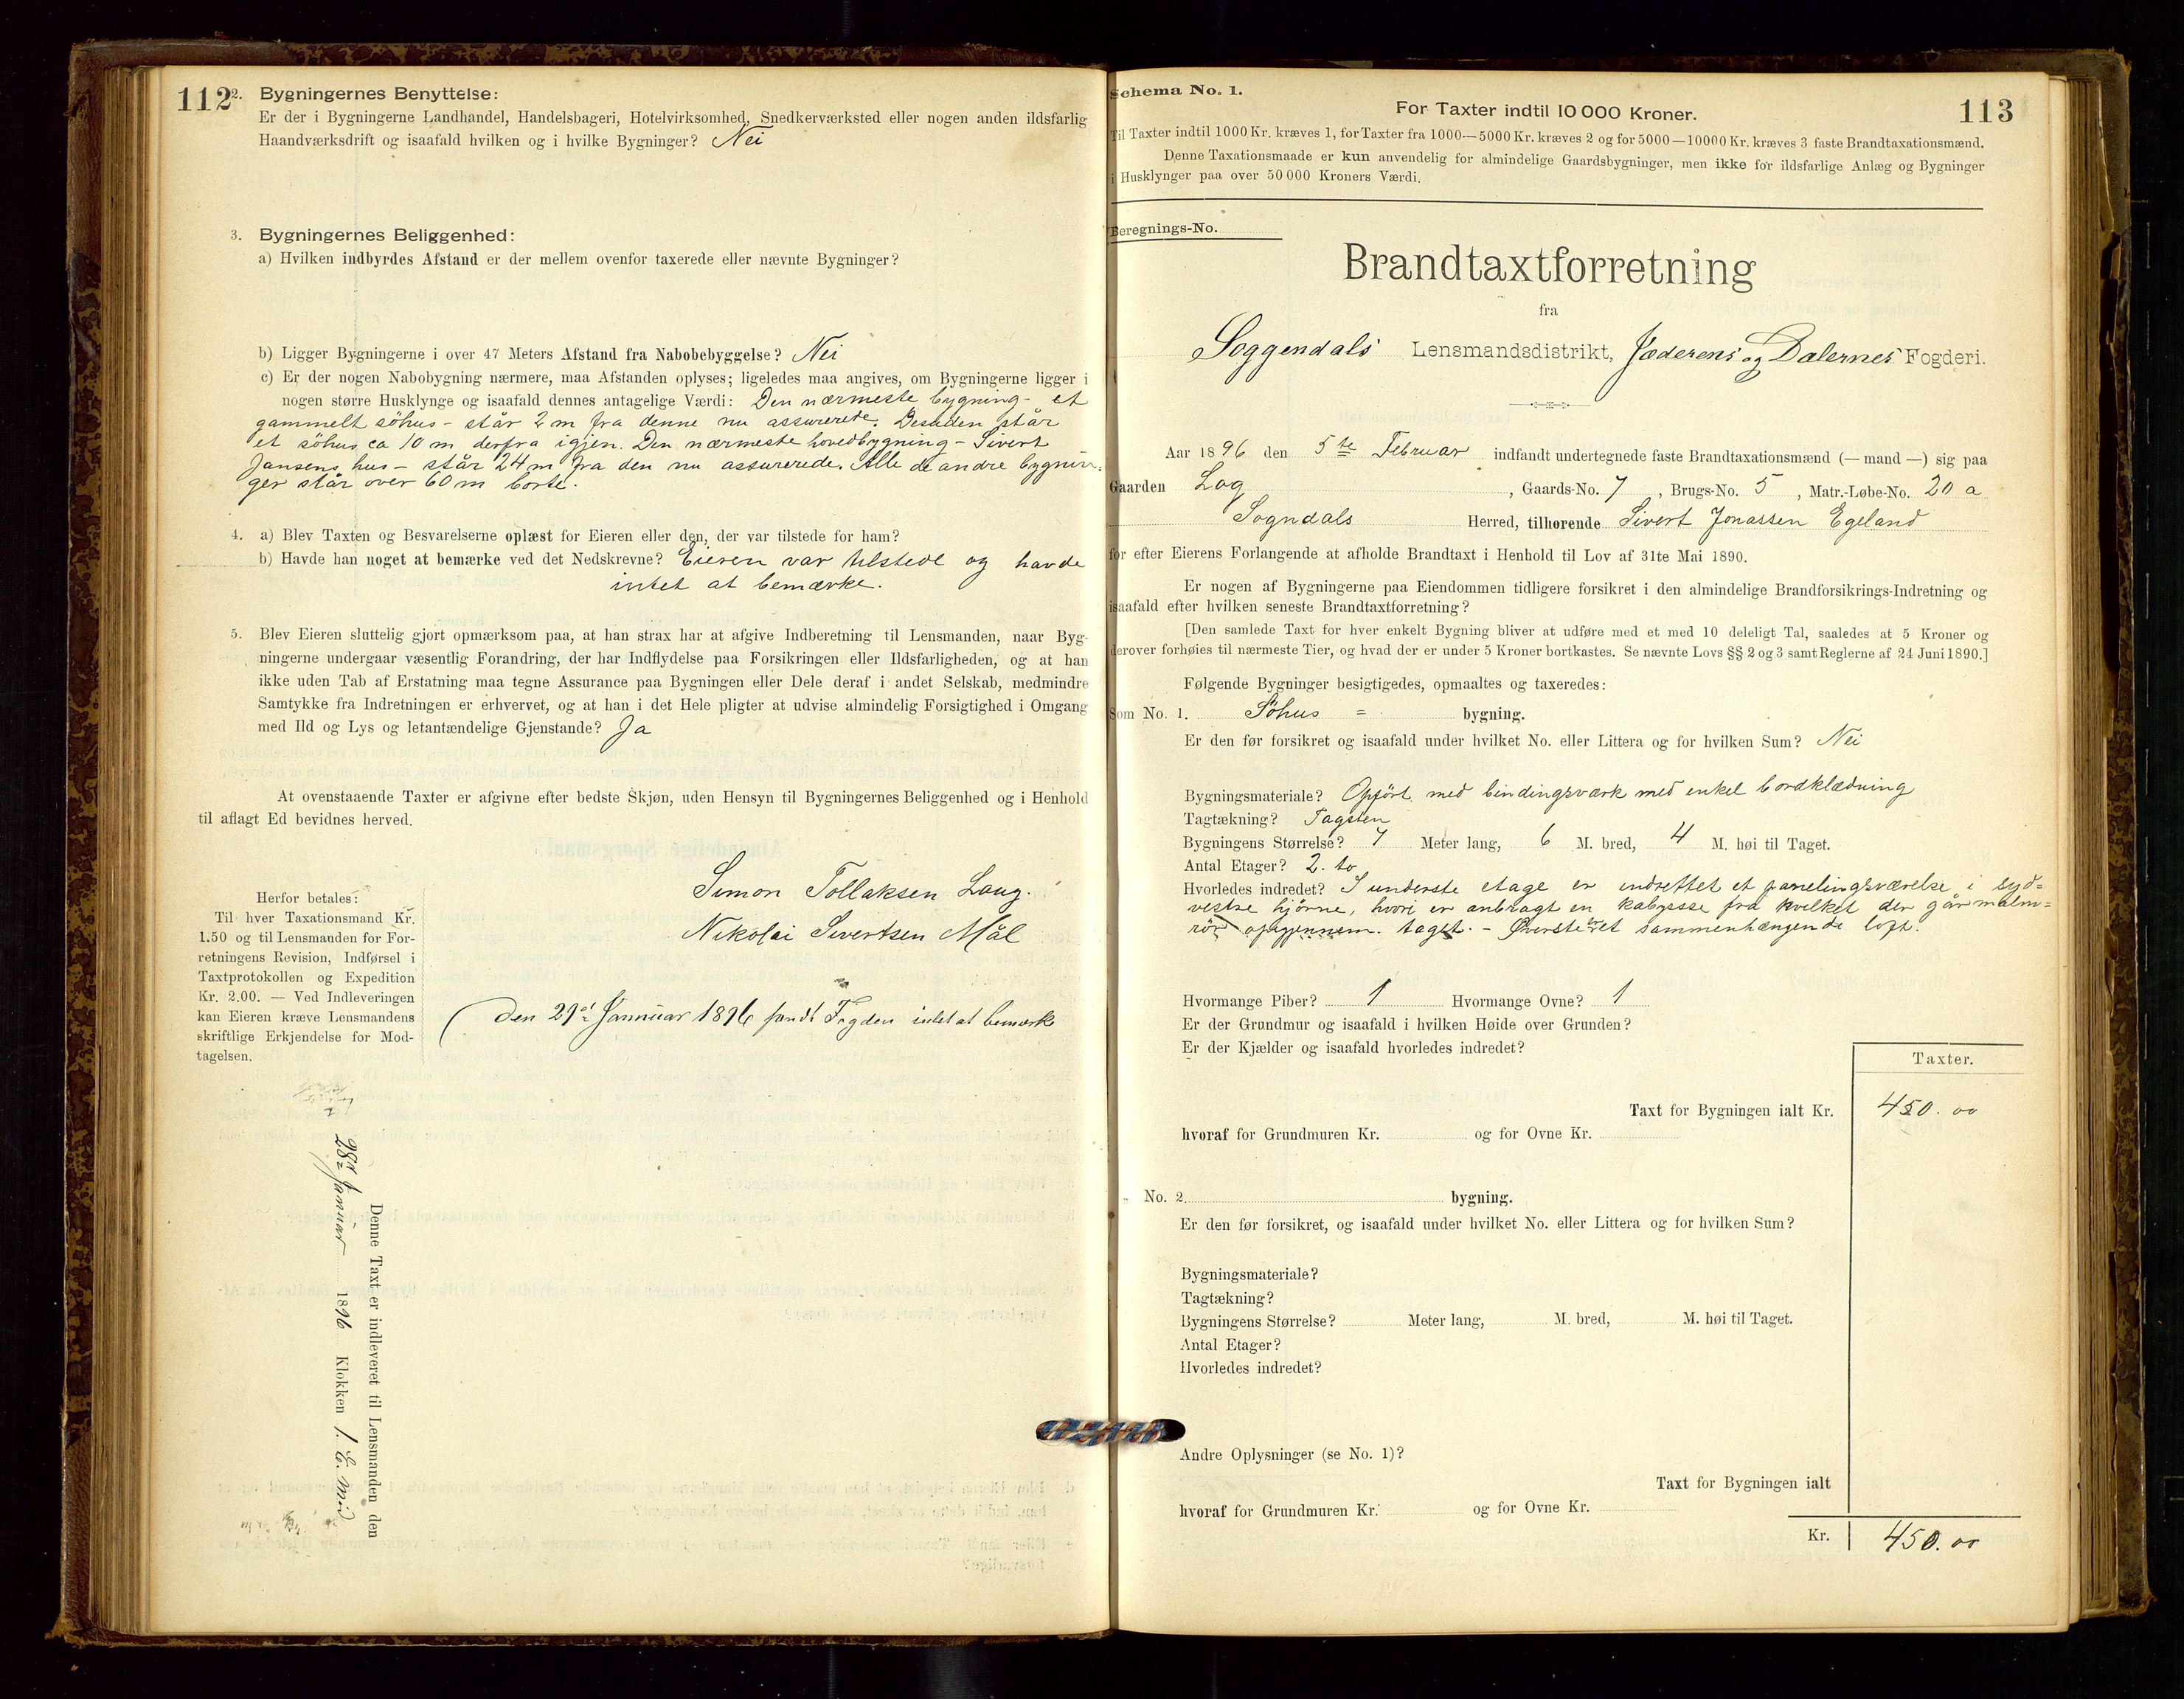 112
2. Bygningernes Benyttelse:
Er der i Bygningerne Landhandel, Handelsbageri, Hotelvirksomhed, Snedkerværksted eller nogen anden ildsfarlig
Haandværksdrift og isaafald hvilken og i hvilke Bygninger? Nei
3. Bygningernes Beliggenhed:
a) Hvilken indbyrdes Afstand er der mellem ovenfor taxerede eller nævnte Bygninger?
b) Ligger Bygningerne i over 47 Meters Afstand fra Nabobebyggelse? Nei
c) Er der nogen Nabobygning nærmere, maa Afstanden oplyses; ligeledes maa angives, om Bygningerne ligger i
nogen større Husklynge og isaafald dennes antagelige Værdi: Den nærmeste bygning - et
gammelt söhus - står 2 m fra denne nu assurerede. Desuden står
et söhus ca 10 m derfra igjen. Den nærmeste hovedbygning - Sivert
Jansens hus - står 24 m fra den nu assurerede. Alle de andre bygnin-
ger står over 60 m borte.
4. a) Blev Taxten og Besvarelserne oplæst for Eieren eller den, der var tilstede for ham?
b) Havde han noget at bemærke ved det Nedskrevne? Eieren var tilstede og havde
intet at bemærke.
5. Blev Eieren sluttelig gjort opmærksom paa, at han strax har at afgive Indberetning til Lensmanden, naar Byg-
ningerne undergaar væsentlig Forandring, der har Indflydelse paa Forsikringen eller Ildsfarligheden, og at han
ikke uden Tab af Erstatning maa tegne Assurance paa Bygningen eller Dele deraf i andet Selskab, medmindre
Samtykke fra Indretningen er erhvervet, og at han i det Hele pligter at udvise almindelig Forsigtighed i Omgang
med Ild og Lys og letantændelige Gjenstande? Ja
At ovenstaaende Taxter er afgivne efter bedste Skjøn, uden Hensyn til Bygningernes Beliggenhed og i Henhold
til aflagt Ed bevidnes herved.
Simon Tollaksen Loug.
Nikolai Sivertsen Mål
Herfor betales:
Til hver Taxationsmand Kr.
1.50 og til Lensmanden for For-
retningens Revision, Indførsel i
Taxtprotokollen og Expedition
Kr. 2.00. — Ved Indleveringen
kan Eieren kræve Lensmandens
skriftlige Erkjendelse for Mod-
tagelsen.
Den 29de Januar 1896 fandt Fogden intet at bemærke
Denne Taxt er indleveret til Lensmanden den
28de Januar 1896 Klokken 1. E. Mid
Schema No. 1.
For Taxter indtil 10 000 Kroner.
113
Til Taxter indtil 1000 Kr. kræves 1, for Taxter fra 1000—5000 Kr. kræves 2 og for 5000—10000 Kr. kræves 3 faste Brandtaxationsmænd.
Denne Taxationsmaade er kun anvendelig for almindelige Gaardsbygninger, men ikke for ildsfarlige Anlæg og Bygninger
i Husklynger paa over 50 000 Kroners Værdi.
Beregnings-No.
Brandtaxtforretning
fra
Soggendals Lensmandsdistrikt, Jæderens og Dalernes Fogderi.
Aar 1896 den 5te Februar indfandt undertegnede faste Brandtaxationsmænd (— mand —) sig paa
Gaarden Log, Gaards-No. 7, Brugs-No. 5, Matr.-Løbe-No. 20 a
Sogndals Herred, tilhørende Sivert Jonassen Egeland
for efter Eierens Forlangende at afholde Brandtaxt i Henhold til Lov af 31te Mai 1890.
Er nogen af Bygningerne paa Eiendommen tidligere forsikret i den almindelige Brandforsikrings-Indretning og
isaafald efter hvilken seneste Brandtaxtforretning?
[Den samlede Taxt for hver enkelt Bygning bliver at udføre med et med 10 deleligt Tal, saaledes at 5 Kroner og
derover forhøies til nærmeste Tier, og hvad der er under 5 Kroner bortkastes. Se nævnte Lovs §§ 2 og 3 samt Reglerne af 24 Juni 1890.]
Følgende Bygninger besigtigedes, opmaaltes og taxeredes:
Som No. 1. Söhus = bygning.
Er den før forsikret og isaafald under hvilket No. eller Littera og for hvilken Sum? Nei
Bygningsmateriale? Opfört med bindingsværk med enkel bordklædning
Tagtækning? Tagsten
Bygningens Størrelse? 7 Meter lang, 6 M. bred, 4 M. høi til Taget.
Antal Etager? 2. to
Hvorledes indredet? I underste etage er indrettet et panelingsværelse i syd=
vestre hjörne, hvori er anbragt en kabysse fra hvilket der går malm=
rör opigjennem taget. - Överste er et sammenhængende loft.
Hvormange Piber? 1 Hvormange Ovne? 1
Er der Grundmur og isaafald i hvilken Høide over Grunden?
Er der Kjælder og isaafald hvorledes indredet?
Taxter.
Taxt for Bygningen ialt Kr. 450. 00
hvoraf for Grundmuren Kr. og for Ovne Kr.
No. 2. bygning.
Er den før forsikret, og isaafald under hvilket No. eller Littera og for hvilken Sum?
Bygningsmateriale?
Tagtækning?
Bygningens Størrelse? Meter lang, M. bred, M. høi til Taget.
Antal Etager?
Hvorledes indredet?
Andre Oplysninger (se No. 1)?
Taxt for Bygningen ialt
hvoraf for Grundmuren Kr. og for Ovne Kr.
Kr. 450. 00